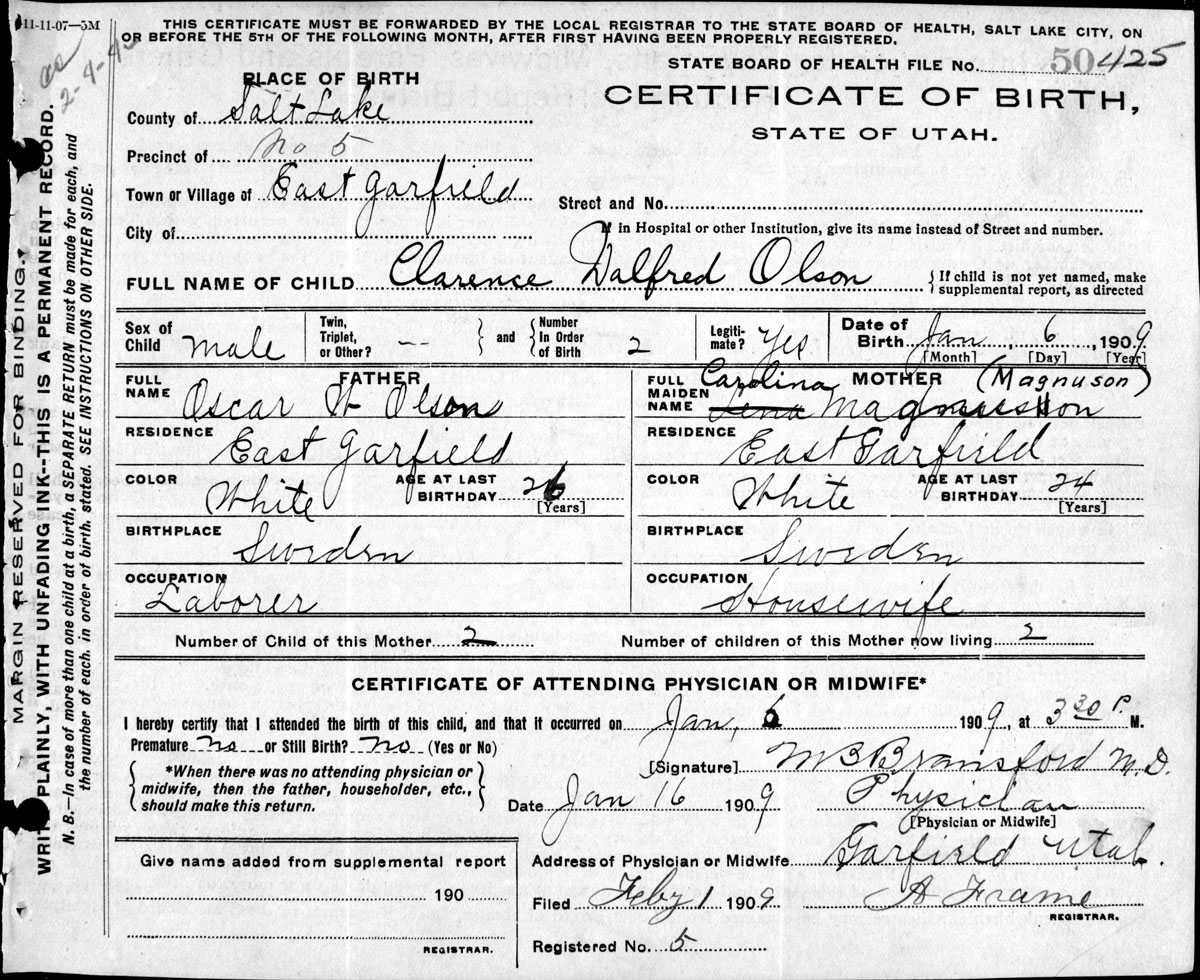 11-11-07—5M
THIS CERTIFICATE MUST BE FORWARDED BY THE LOCAL REGISTRAR TO THE STATE BOARD OF HEALTH, SALT LAKE CITY, ON
OR BEFORE THE 5TH OF THE FOLLOWING MONTH, AFTER FIRST HAVING BEEN PROPERLY REGISTERED.
2-4-43
STATE BOARD OF HEALTH FILE No. 50425
PLACE OF BIRTH
CERTIFICATE OF BIRTH,
STATE OF UTAH.
County of Salt Lake
Precinct of No 5
Town or Village of East Garfield
Street and No.
City of
If in Hospital or other Institution, give its name instead of Street and number.
FULL NAME OF CHILD Clarence Dalfred Olson { If child is not yet named, make
supplemental report, as directed
Sex of Child male Twin, Triplet, or Other? -- } and { Number In Order of Birth 2 Legiti-mate? Yes Date of Birth Jan 6, 1909
[Month] [Day] [Year]
FATHER
FULL NAME Oscar W Olson
RESIDENCE East Garfield
COLOR White AGE AT LAST BIRTHDAY 26
[Years]
BIRTHPLACE Sweden
OCCUPATION Laborer
MOTHER (Magnuson)
FULL MAIDEN NAME Carolina Lena Magnusson
RESIDENCE East Garfield
COLOR White AGE AT LAST BIRTHDAY 24
[Years]
BIRTHPLACE Sweden
OCCUPATION Housewife
Number of Child of this Mother 2 Number of children of this Mother now living 2
CERTIFICATE OF ATTENDING PHYSICIAN OR MIDWIFE*
I hereby certify that I attended the birth of this child, and that it occurred on Jan, 6 1909, at 3 30 P. M.
Premature no or Still Birth? no (Yes or No)
{ *When there was no attending physician or
midwife, then the father, householder, etc.,
should make this return. }
[Signature] M B Bransford M.D.
Date Jan 16 1909 Physician
[Physician or Midwife]
Give name added from supplemental report
190
REGISTRAR.
Address of Physician or Midwife Garfield Utah.
Filed Feby 1 1909 A Frame
REGISTRAR.
Registered No. 5
MARGIN RESERVED FOR BINDING.
WRITE PLAINLY, WITH UNFADING INK--THIS IS A PERMANENT RECORD.
N. B.—In case of more than one child at a birth, a SEPARATE RETURN must be made for each, and
the number of each, in order of birth, stated. SEE INSTRUCTIONS ON OTHER SIDE.